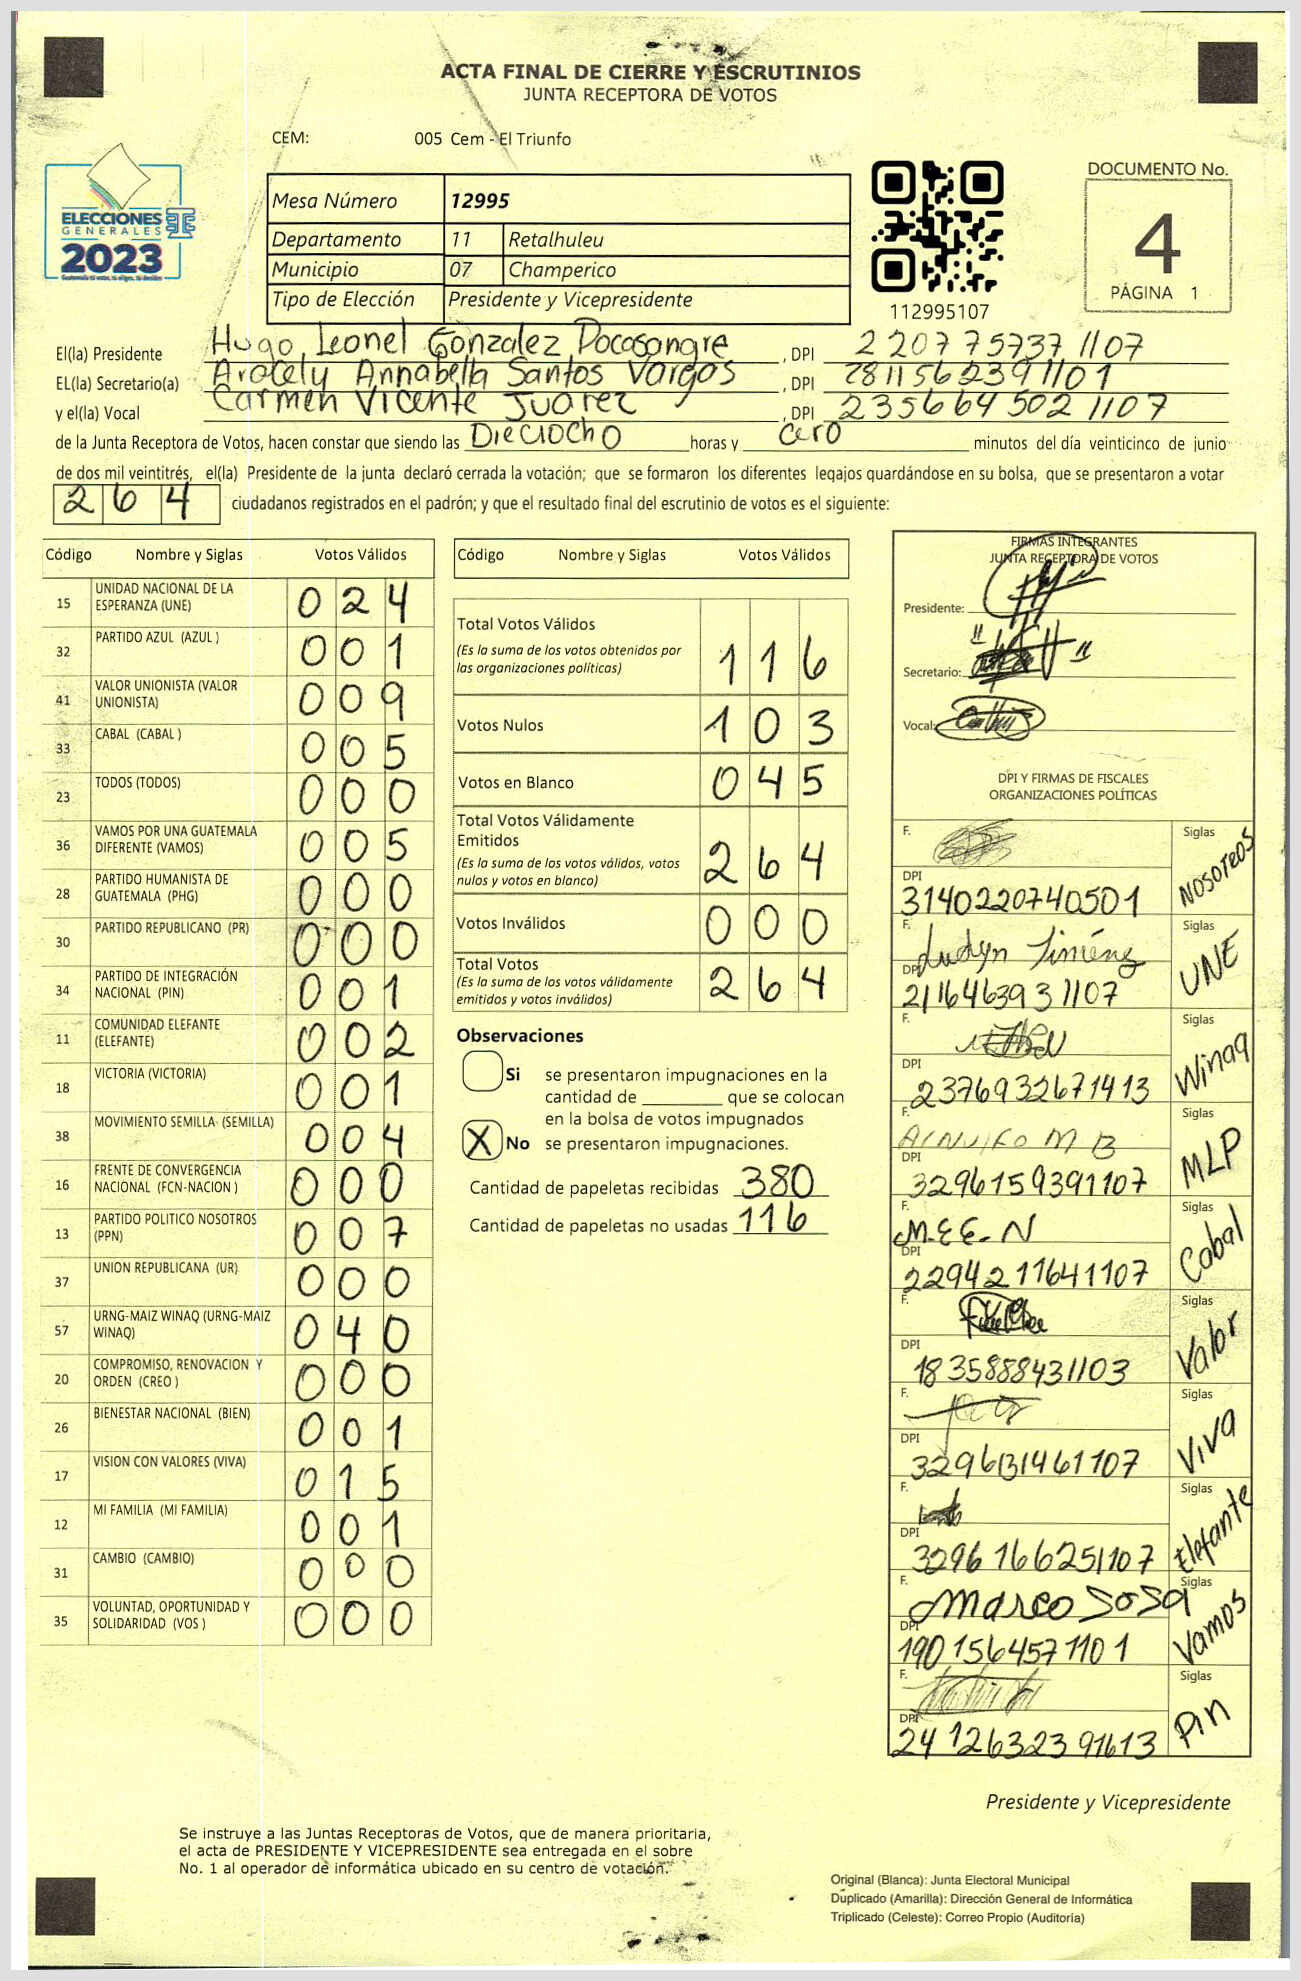 ACTA FINAL DE CIERRE Y ESCRUTINIOS
JUNTA RECEPTORA DE VOTOS
CEM: 005 Cem - El Triunfo
ELECCIONES
GENERALES
2023
Mesa Número 12995
Departamento 11 Retalhuleu
Municipio 07 Champerico
Tipo de Elección Presidente y Vicepresidente
112995107
DOCUMENTO No.
4
PÁGINA 1
El(la) Presidente Hugo Leonel Gonzalez Pocasangre, DPI 2207757371107
EL(la) Secretario(a) Aracely Annabella Santos Vargas, DPI 2811562391101
y el(la) Vocal Carmen Vicente Juarez, DPI 2356645021107
de la Junta Receptora de Votos, hacen constar que siendo las Dieciocho horas y cero minutos del día veinticinco de junio
de dos mil veintitrés, el(la) Presidente de la junta declaró cerrada la votación; que se formaron los diferentes legajos quardándose en su bolsa, que se presentaron a votar
264 ciudadanos registrados en el padrón; y que el resultado final del escrutinio de votos es el siguiente:
Código Nombre y Siglas Votos Válidos
15 UNIDAD NACIONAL DE LA ESPERANZA (UNE) 024
32 PARTIDO AZUL (AZUL ) 001
41 VALOR UNIONISTA (VALOR UNIONISTA) 009
33 CABAL (CABAL ) 005
23 TODOS (TODOS) 000
36 VAMOS POR UNA GUATEMALA DIFERENTE (VAMOS) 005
28 PARTIDO HUMANISTA DE GUATEMALA (PHG) 000
30 PARTIDO REPUBLICANO (PR) 000
34 PARTIDO DE INTEGRACIÓN NACIONAL (PIN) 001
11 COMUNIDAD ELEFANTE (ELEFANTE) 002
18 VICTORIA (VICTORIA) 001
38 MOVIMIENTO SEMILLA (SEMILLA) 004
16 FRENTE DE CONVERGENCIA NACIONAL (FCN-NACION ) 000
13 PARTIDO POLITICO NOSOTROS (PPN) 007
37 UNION REPUBLICANA (UR) 000
57 URNG-MAIZ WINAQ (URNG-MAIZ WINAQ) 040
20 COMPROMISO, RENOVACION Y ORDEN (CREO ) 000
26 BIENESTAR NACIONAL (BIEN) 001
17 VISION CON VALORES (VIVA) 015
12 MI FAMILIA (MI FAMILIA) 001
31 CAMBIO (CAMBIO) 000
35 VOLUNTAD, OPORTUNIDAD Y SOLIDARIDAD (VOS ) 000
Código Nombre y Siglas Votos Válidos
Total Votos Válidos 116
(Es la suma de los votos obtenidos por
las organizaciones políticas)
Votos Nulos 103
Votos en Blanco 045
Total Votos Válidamente
Emitidos 264
(Es la suma de los votos válidos, votos
nulos y votos en blanco)
Votos Inválidos 000
Total Votos 264
(Es la suma de los votos válidamente
emitidos y votos inválidos)
Observaciones
Si se presentaron impugnaciones en la
cantidad de ________ que se colocan
en la bolsa de votos impugnados
X No se presentaron impugnaciones.
Cantidad de papeletas recibidas 380
Cantidad de papeletas no usadas 116
FIRMAS INTEGRANTES
JUNTA RECEPTORA DE VOTOS
Presidente:
Secretario:
Vocal:
DPI Y FIRMAS DE FISCALES
ORGANIZACIONES POLÍTICAS
F. Siglas NOSOTROS
DPI 3140220740501
F. Ludyn Jiménez Siglas UNE
DPI 2116463931107
F. Siglas Winaq
DPI 2376932671413
F. Arnulfo M B Siglas MLP
DPI 3296159391107
F. M.E E. N Siglas Cabal
DPI 2294211641107
F. Siglas Valor
DPI 1835888431103
F. Siglas Viva
DPI 3296131461107
F. Siglas Elefante
DPI 3296166251107
F. Marco Sosa Siglas Vamos
DPI 1901564571101
F. Siglas Pin
DPI 2412632391613
Presidente y Vicepresidente
Se instruye a las Juntas Receptoras de Votos, que de manera prioritaria,
el acta de PRESIDENTE Y VICEPRESIDENTE sea entregada en el sobre
No. 1 al operador de informática ubicado en su centro de votación.
Original (Blanca): Junta Electoral Municipal
Duplicado (Amarilla): Dirección General de Informática
Triplicado (Celeste): Correo Propio (Auditoría)